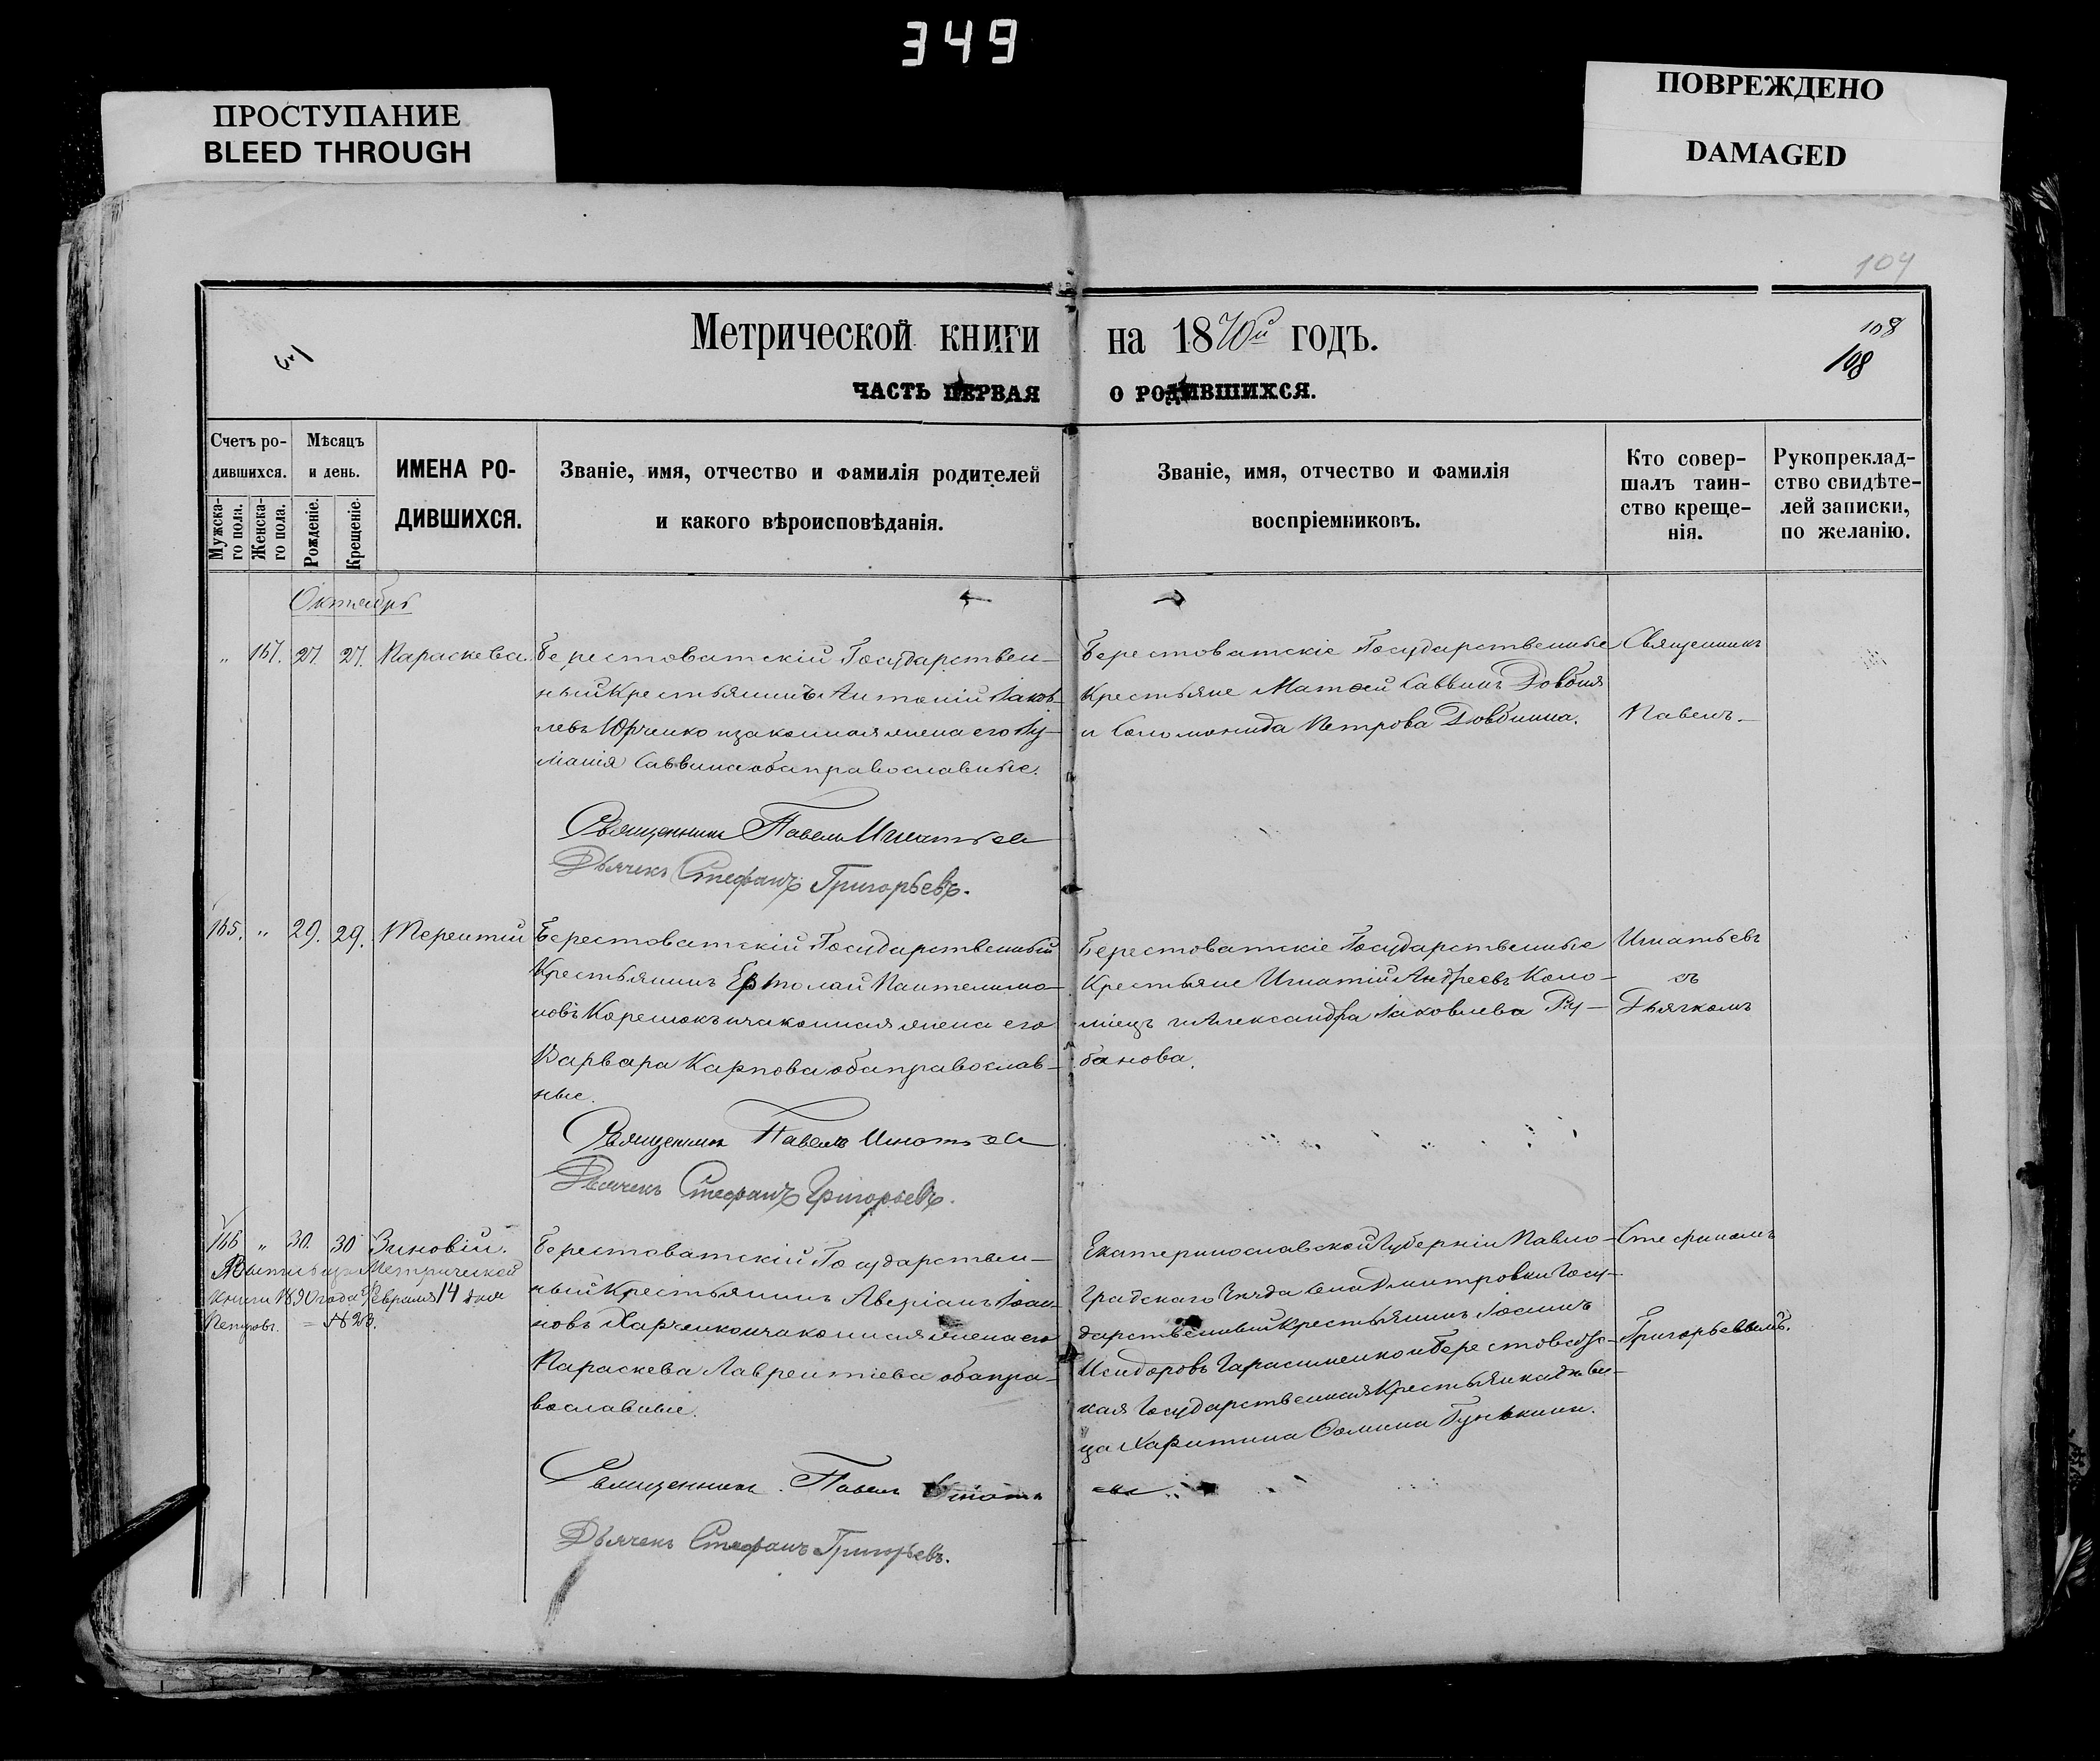 349
ПРОСТУПАНИЕ
BLEED THROUGH
ПОВРЕЖДЕНО
DAMAGED
104
Метрической книги на 1870й годъ.
108
108
ЧАСТЬ ПЕРВАЯ О РОДИВШИХСЯ.
Счетъ ро-
дившихся.
Мужска-
го пола.
Женска-
го пола.
Мѣсяцъ
и день.
Рожденіе.
Крещеніе.
ИМЕНА РО-
ДИВШИХСЯ.
Званіе, имя, отчество и фамилія родителей
и какого вѣроисповѣданія.
Званіе, имя, отчество и фамилія
воспріемниковъ.
Кто совер-
шалъ таин-
ство креще-
нія.
Рукопреклад-
ство свидѣте-
лей записки,
по желанію.
Октябрь
„ 167. 27. 27. Параскева.
Берестоватскій Государствен-
ный Крестьянинъ Антоній Іаков-
левъ Юрченко и законная жена его
Саввина оба православные.
Священникъ Павелъ Игнатьев
Дьячекъ Стефанъ Григорьевъ.
Берестоватскіе Государственные
Крестьяне Матѳей Саввинъ Довбня
и Соломонида Петрова Довбнина.
Священникъ
Павелъ.
165. „ 29. 29. Терентій
Берестоватскій Государственный
Крестьянинъ Ермолай Пантелимо-
новъ Корешокъ и законная жена его
Варвара Карпова оба православ-
ные.
Священникъ Павелъ Игнатьев
Дьячекъ Стефанъ Григорьевъ.
Берестоватскіе Государственные
Крестьяне Игнатій Андреевъ Коло-
міецъ и Александра Іаковлева Ру-
банова.
Игнатьевъ
съ
Дьячкомъ
166 „ 30. 30 Зиновій.
Метрической
книги 1890 года Февраля 14 дня
Петровъ. № 20.
Берестоватскій Государствен-
ный Крестьянинъ Аверіанъ Іоан-
новъ Харченко и законная жена его
Параскева Лаврентіева оба пра-
вославные.
Священникъ Павелъ Игнатьев
Дьячекъ Стефанъ Григорьевъ.
Екатеринославской Губерніи Павло-
градскаго Уѣзда села Дмитровки Госу-
дарственный Крестьянинъ Іоаннъ
Исидоровъ Гарасименко и Берестоватс-
кая Государственная Крестьянка дѣви-
ца Харитина Ѳомина
Стефаномъ
Григорьевымъ.